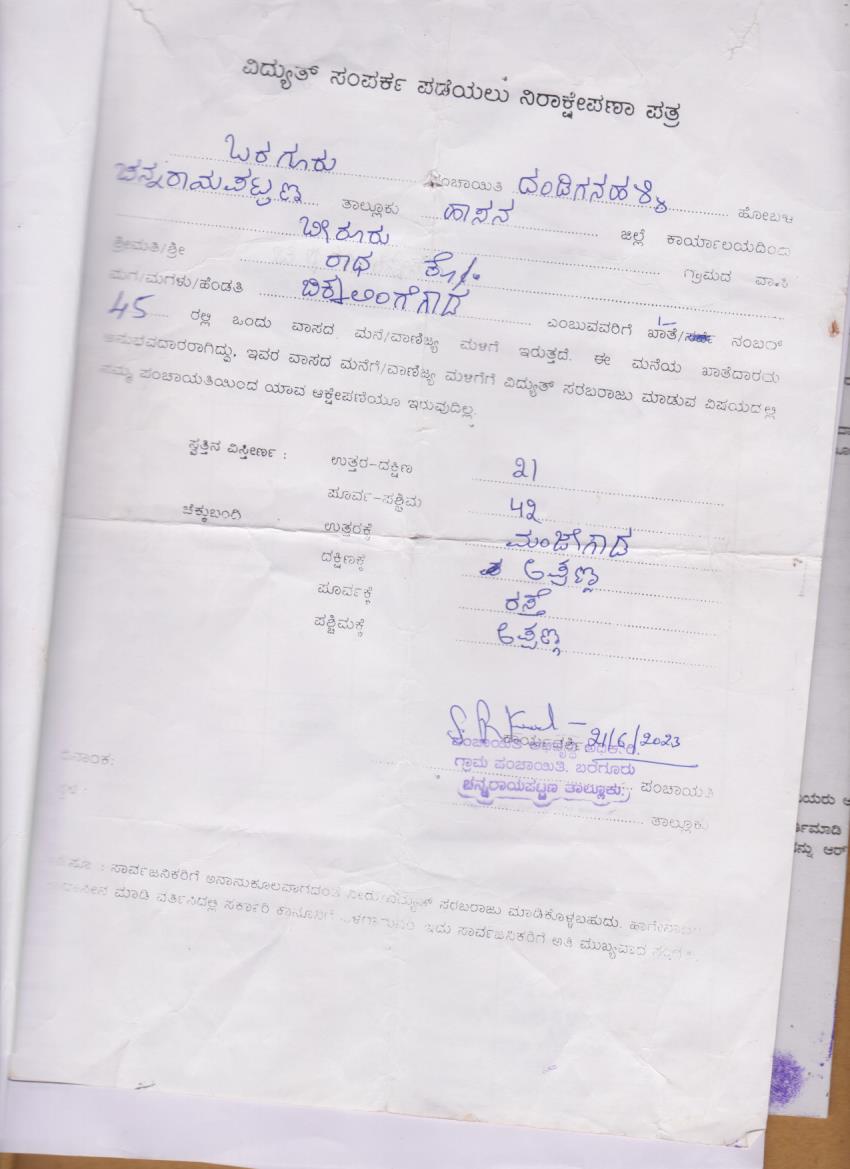 ವಿದ್ಯುತ್ ಸಂಪರ್ಕ ಪಡೆಯಲು ನಿರಾಕ್ಷೇಪಣಾ ಪತ್ರ
ಬರಗೂರು ಪಂಚಾಯಿತಿ ದಂಡಿಗನಹಳ್ಳಿ ಹೋಬಳಿ
ಚನ್ನರಾಯಪಟ್ಟಣ ತಾಲ್ಲೂಕು ಹಾಸನ ಜಿಲ್ಲೆ ಕಾರ್ಯಾಲಯದಿಂದ
ಬೀಕೂರು ಗ್ರಾಮದ ವಾಸಿ
ಶ್ರೀಮತಿ/ಶ್ರೀ ರಾಧ ಕೋ/.
ಮಗ/ಮಗಳು/ಹೆಂಡತಿ ಎಂಬುವವರಿಗೆ ಖಾತೆ/ನಂಬರ್
45 ರಲ್ಲಿ ಒಂದು ವಾಸದ ಮನೆ/ವಾಣಿಜ್ಯ ಮಳಿಗೆ ಇರುತ್ತದೆ. ಈ ಮನೆಯ ಖಾತೆದಾರರು
ಅನುಭವದಾರರಾಗಿದ್ದು, ಇವರ ವಾಸದ ಮನೆಗೆ/ವಾಣಿಜ್ಯ ಮಳಿಗೆಗೆ ವಿದ್ಯುತ್ ಸರಬರಾಜು ಮಾಡುವ ವಿಷಯದಲ್ಲಿ
ನಮ್ಮ ಪಂಚಾಯತಿಯಿಂದ ಯಾವ ಆಕ್ಷೇಪಣೆಯೂ ಇರುವುದಿಲ್ಲ.
ಸ್ವತ್ತಿನ ವಿಸ್ತೀರ್ಣ : ಉತ್ತರ-ದಕ್ಷಿಣ 21
ಪೂರ್ವ-ಪಶ್ಚಿಮ 42
ಚೆಕ್ಕುಬಂದಿ ಉತ್ತರಕ್ಕೆ ಮಂಜೇಗೌಡ
ದಕ್ಷಿಣಕ್ಕೆ ಅಣ್ಣಪ್ಪ
ಪೂರ್ವಕ್ಕೆ ರಸ್ತೆ
ಪಶ್ಚಿಮಕ್ಕೆ
21/6/2023
ಕಾರ್ಯದರ್ಶಿ
ಪಂಚಾಯಿತಿ ಅಭಿವೃದ್ಧಿ ಅಧಿಕಾರಿ
ಗ್ರಾಮ ಪಂಚಾಯಿತಿ. ಬರಗೂರು
ದಿನಾಂಕ:
ಚನ್ನರಾಯಪಟ್ಟಣ ತಾಲ್ಲೂಕು. ಪಂಚಾಯತಿ
ಸ್ಥಳ :
ತಾಲ್ಲೂಕು
ಸಾರ್ವಜನಿಕರಿಗೆ ಅನಾನುಕೂಲವಾಗದಂತೆ ನೀರು/ವಿದ್ಯುತ್ ಸರಬರಾಜು ಮಾಡಿಕೊಳ್ಳಬಹುದು.
ಮಾಡಿ ವರ್ತಿಸಿದಲ್ಲಿ ಸರ್ಕಾರಿ ಕಾನೂನಿಗೆ ಇದು ಸಾರ್ವಜನಿಕರಿಗೆ ಅತಿ ಮುಖ್ಯವಾದ